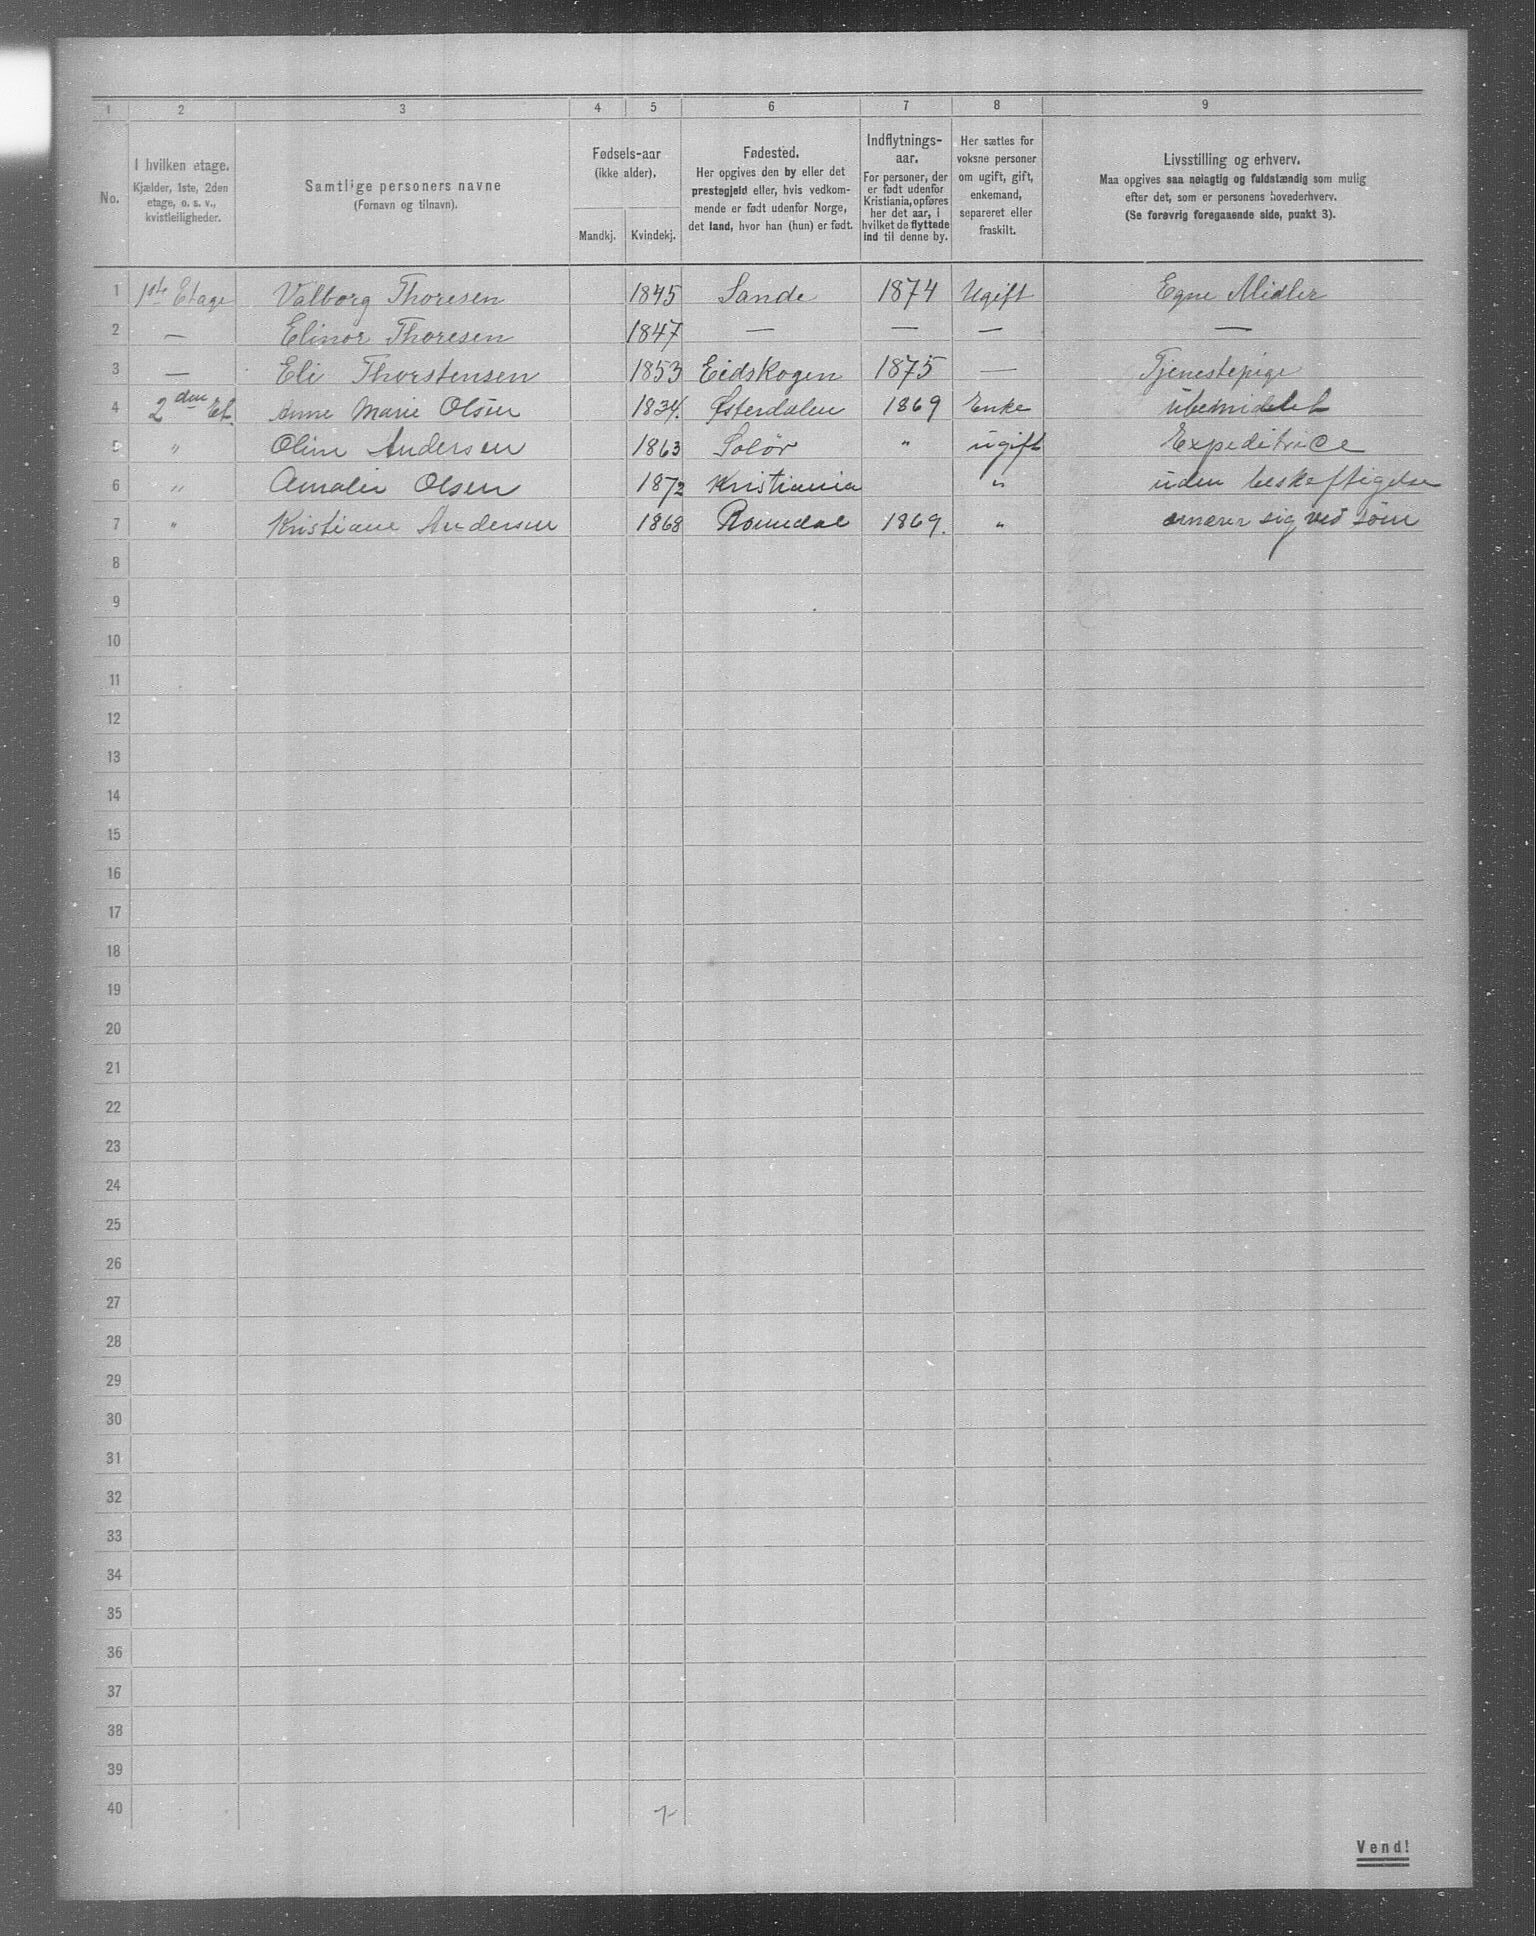 1 2 3 4 5 6 7 8 9
No.
I hvilken etage.
Kjælder, 1ste, 2den
etage, o. s. v.,
kvistleiligheder.
Samtlige personers navne
(Fornavn og tilnavn).
Fødsels-aar
(ikke alder).
Mandkj. Kvindekj.
Fødested.
Her opgives den by eller det
prestegjeld eller, hvis vedkom-
mende er født udenfor Norge,
det land, hvor han (hun) er født.
Indflytnings-
aar.
For personer, der
er født udenfor
Kristiania, opføres
her det aar, i
hvilket de flyttede
ind til denne by.
Her sættes for
voksne personer
om ugift, gift,
enkemand,
separeret eller
fraskilt.
Livsstilling og erhverv.
Maa opgives saa nøiagtig og fuldstændig som mulig
efter det, som er personens hovederhverv.
(Se forøvrig foregaaende side, punkt 3).
1 1ste Etage Valborg Thoresen 1845 Sande 1874 Ugift Egne Midler
2 — Elinor Thoresen 1847 — — — —
3 — Eli Thorstensen 1853 Eidskogen 1875 — Tjenestepige
4 2den Et. Anne Marie Olsen 1834. Østerdalen 1869 Enke ubemidlet
5 " Oline Andersen 1863 Solør " ugift Expeditrice
6 " Amalie Olsen 1872 Kristiania " uden beskeftigelse
7 " Kristiane Andersen 1868 Romedal 1869. " ernærer sig ved søm
8
9
10
11
12
13
14
15
16
17
18
19
20
21
22
23
24
25
26
27
28
29
30
31
32
33
34
35
36
37
38
39
40 7
Vend!